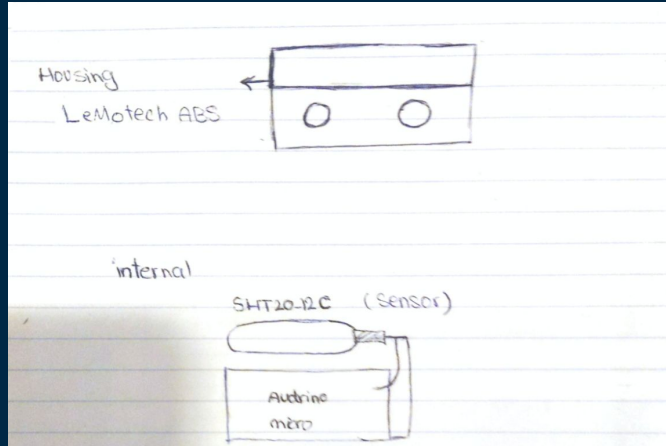 Housing
LeMotech ABS
internal
SHT20-I2C (Sensor)
Audrino
micro